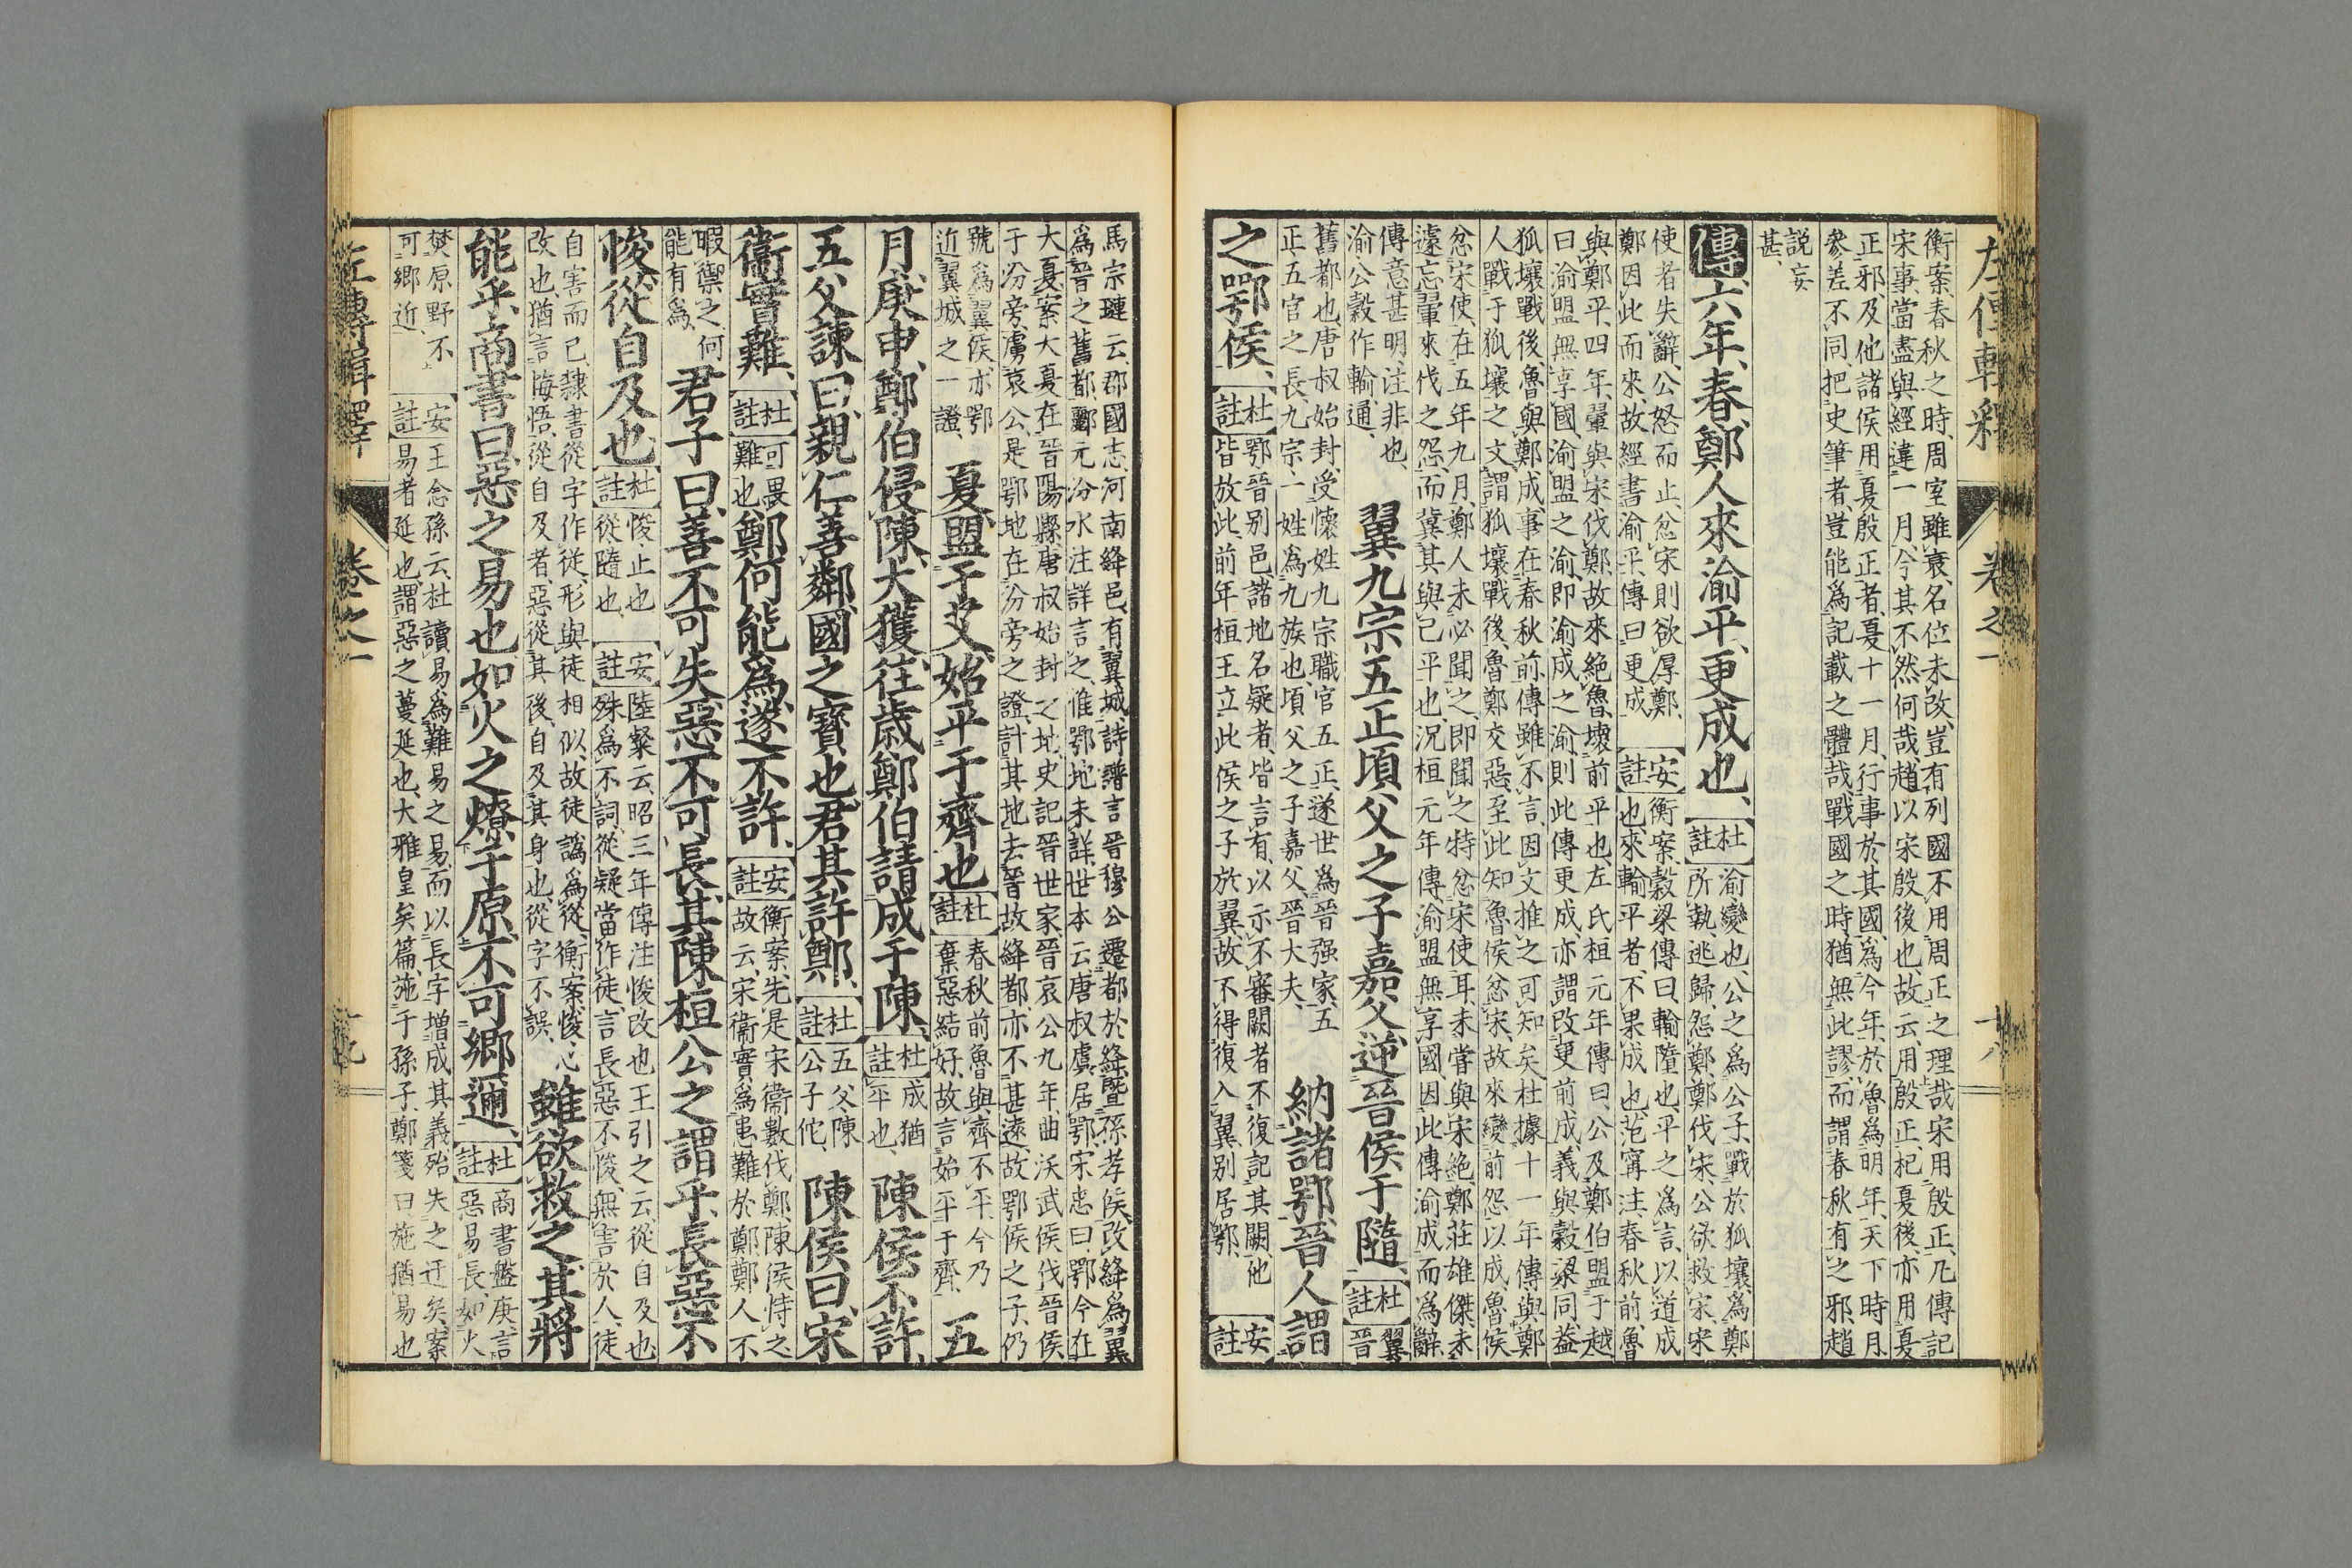 左傳輯釋 卷之一 十八
衡案、春秋之時、周室雖衰、名位未改、豈有列國不用周正之理哉、宋用殷正、凡傳記
宋事、當盡與經違一月、今其不然何哉、趙以宋殷後也、故云、用殷正、杞夏後亦用夏
正邪、及他諸侯用夏殷正者、夏十一月、行事於其國、爲今年、於魯爲明年、天下時月
參差不同、把史筆者、豈能爲記載之體哉、戰國之時、猶無此謬、而謂春秋有之邪、趙
説妄
甚、
傳六年、春、鄭人來渝平、更成也、
杜註 渝變也、公之爲公子、戰於狐壤、爲鄭
所執、逃歸、怨鄭、鄭伐宋、公欲救宋、宋
使者失辭、公怒而止、忿宋則欲厚鄭、
鄭因此而來、故經書渝平、傳曰更成
安註 衡案、穀梁傳曰、輸墮也、平之爲言、以道成
也、來輸平者、不果成也、范甯注、春秋前、魯
與鄭平、四年、翬與宋伐鄭、故來絶魯、壞前平也、左氏桓元年傳曰、公及鄭伯盟于越
曰渝盟無享國、渝盟之渝、即渝成之渝、則此傳更成、亦謂改更前成、義與穀梁同、蓋
狐壤戰後、魯與鄭成、事在春秋前、傳雖不言、因文推之可知矣、杜據十一年傳與鄭
人戰于狐壤之文、謂狐壤戰後、魯鄭交惡、至此知魯侯忿宋、故來變前怨以成、魯侯
忿宋使、在五年九月、鄭人未必聞之、即聞之特忿宋使耳、未嘗與宋絶、鄭莊雄傑、未
遽忘翬來伐之怨、而冀其與己平也、況桓元年傳渝盟無享國、因此傳渝成而爲辭
傳意甚明、注非也、
渝公穀作輸、通、
翼九宗五正頃父之子嘉父逆晉侯于隨、
杜註 翼
晉
舊都也、唐叔始封、受懷姓九宗、職官五正、遂世爲晉强家、五
正五官之長、九宗一姓爲九族也、頃父之子嘉父、晉大夫、
納諸鄂、晉人謂
之鄂侯、
杜註 鄂晉別邑、諸地名疑者、皆言有、以示不審、闕者不復記其闕、他
皆放此、前年桓王立此侯之子於翼、故不得復入翼、別居鄂、
安註
馬宗璉云、郡國志、河南絳邑、有翼城、詩譜言晉穆公遷都於絳、曁孫孝侯、改絳爲翼
爲晉之舊都、酈元汾水注詳言之、惟鄂地未詳、世本云、唐叔虞居鄂、宋忠曰、鄂今在
大夏、案大夏在晉陽縣、唐叔始封之地、史記晉世家、晉哀公九年、曲沃武侯伐晉侯
于汾旁、虜哀公、是鄂地在汾旁之證、計其地去晉故絳都、亦不甚遠、故鄂侯之子、仍
號爲翼侯、亦鄂
近翼城之一證、
夏、盟于艾、始平于齊也、
杜註 春秋前、魯與齊不平、今乃
棄惡結好、故言始平于齊、
五
月、庚申、鄭伯侵陳、大獲、往歳鄭伯請成于陳、
杜註 成猶
平也、
陳侯不許、
五父諫曰、親仁善鄰、國之寶也、君其許鄭、
杜註 五父、陳
公子佗、
陳侯曰、宋
衞實難、
杜註 可畏
難也、
鄭何能爲、遂不許、
安註 衡案、先是宋衞數伐鄭、陳侯恃之、
故云、宋衞實爲患難於鄭、鄭人不
暇禦之、何
能有爲、
君子曰、善不可失、惡不可長、其陳桓公之謂乎、長惡不
悛、從自及也、
杜註 悛止也
從隨也、
安註 陸粲云、昭三年傳注、悛改也、王引之云、從自及也
殊爲不詞、從疑當作徒、言長惡不悛、無害於人、徒
自害而已、隸書從字作従、形與徒相似、故徒譌爲從、衡案、悛心
改也、猶言悔悟、從自及者、惡從其後、自及其身也、從字不誤、
雖欲救之、其將
能乎、商書曰、惡之易也、如火之燎于原、不可鄉邇、
杜註 商書盤庚、言
惡易長、如火
焚原野、不
可鄉近、
安註 王念孫云、杜讀易爲難易之易、而以長字増成其義、殆失之迂矣、案
易者延也、謂惡之蔓延也、大雅皇矣篇、施于孫子、鄭箋曰、施猶易也
左傳輯釋 卷之一 十九